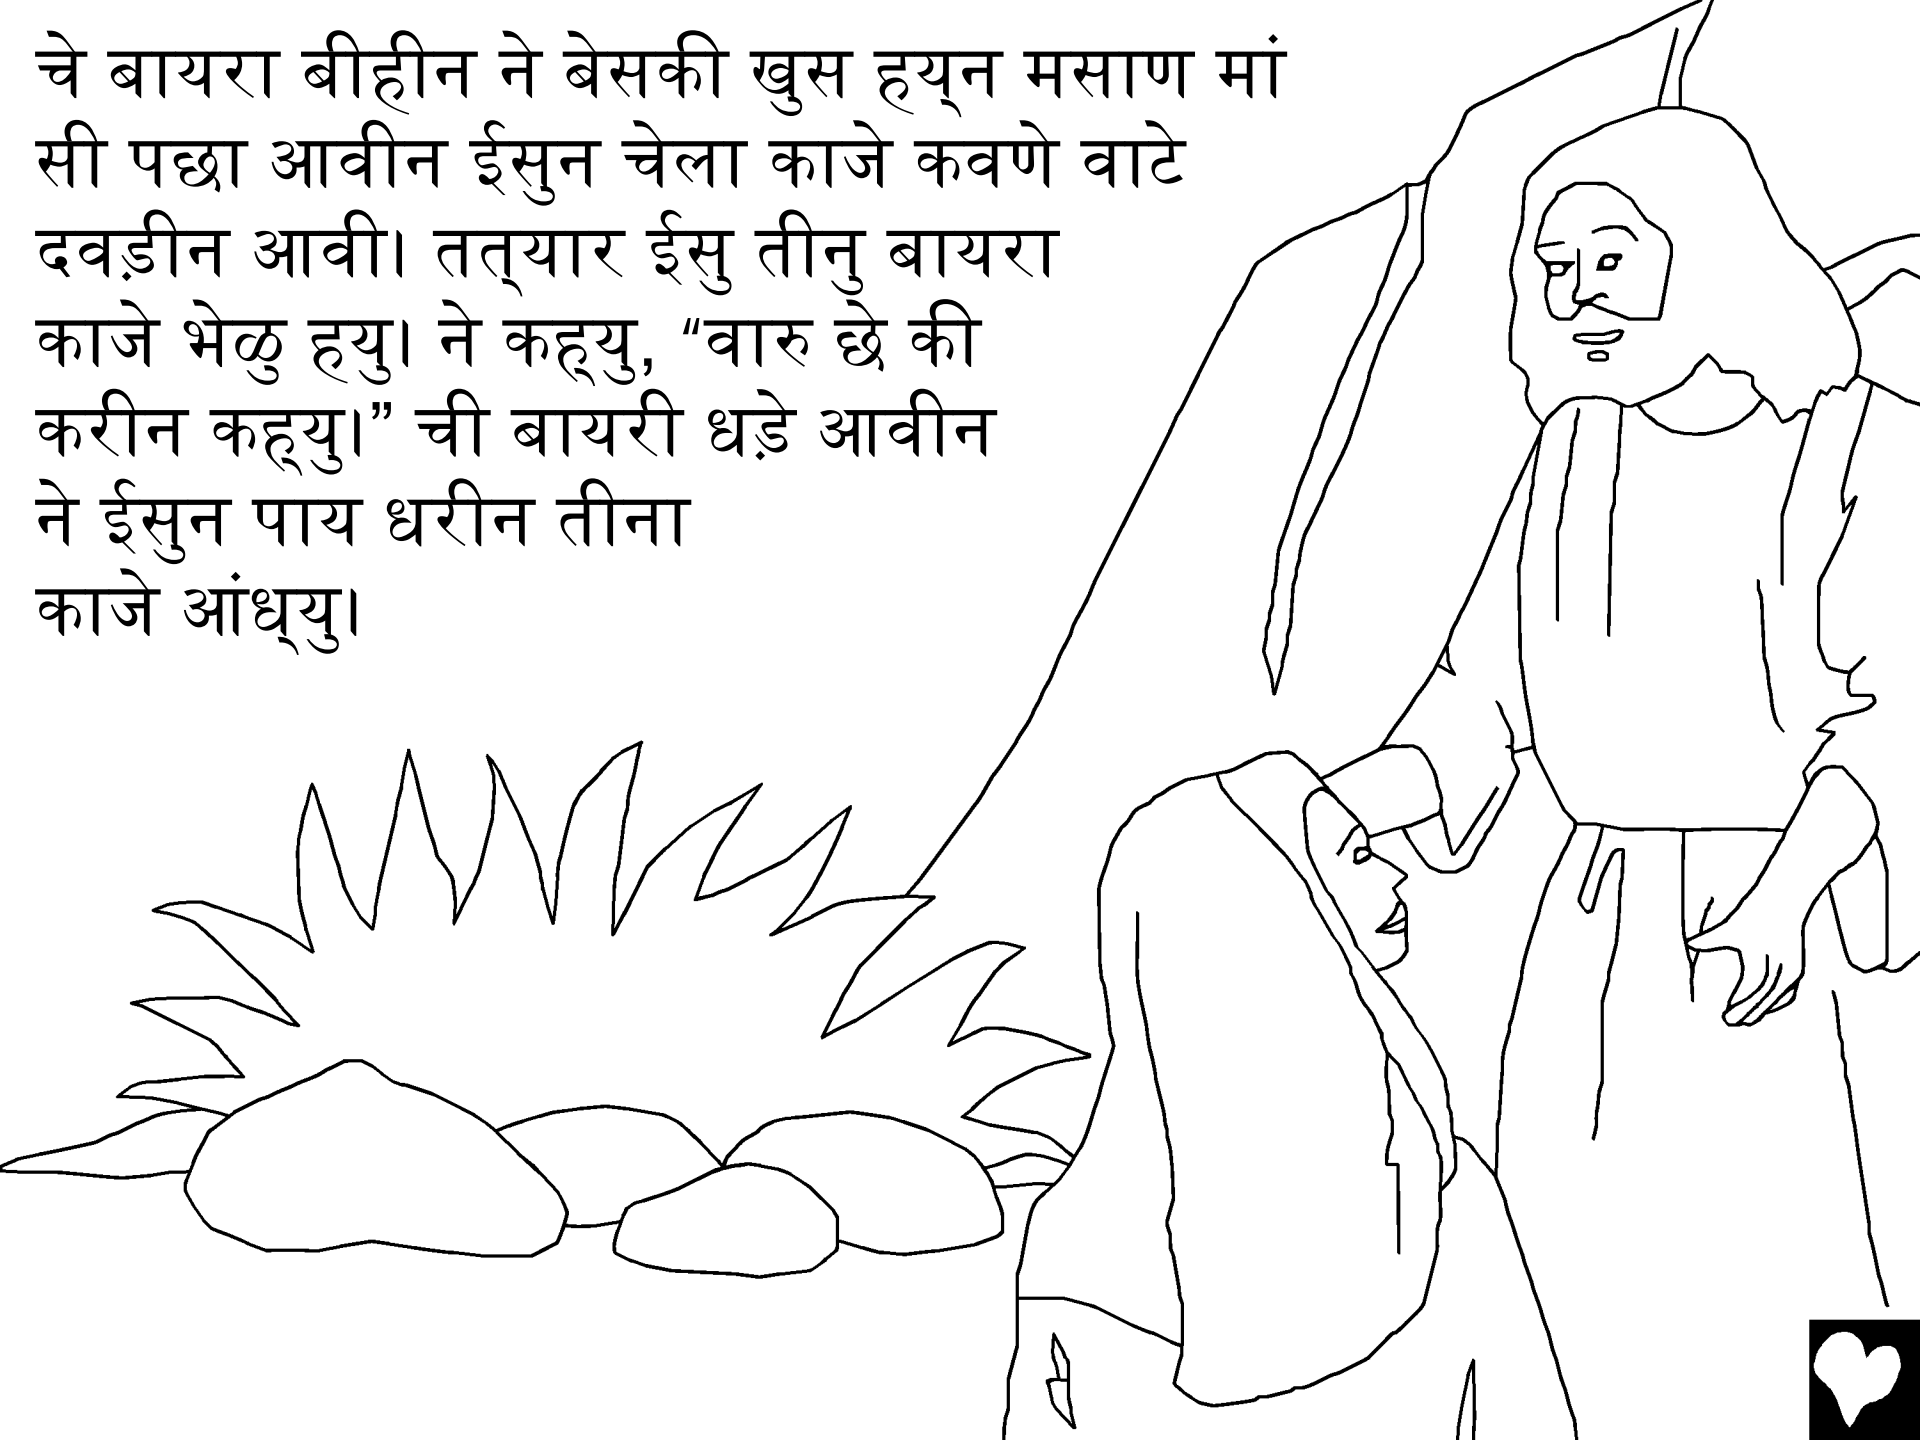 चे बायरा बीहीन ने बेसकी खुस हय्‌न मसाण मां
सी पछा आवीन ईसुन चेला काजे कवणे वाटे
दवड़ीन आवी। तत्‌यार ईसु तीनु बायरा
काजे भेळु हयु। ने कह्‌यु, “वारु छे की
करीन कह्‌यु।” ची बायरी धड़े आवीन
ने ईसुन पाय धरीन तीना
काजे आंध्‌यु।